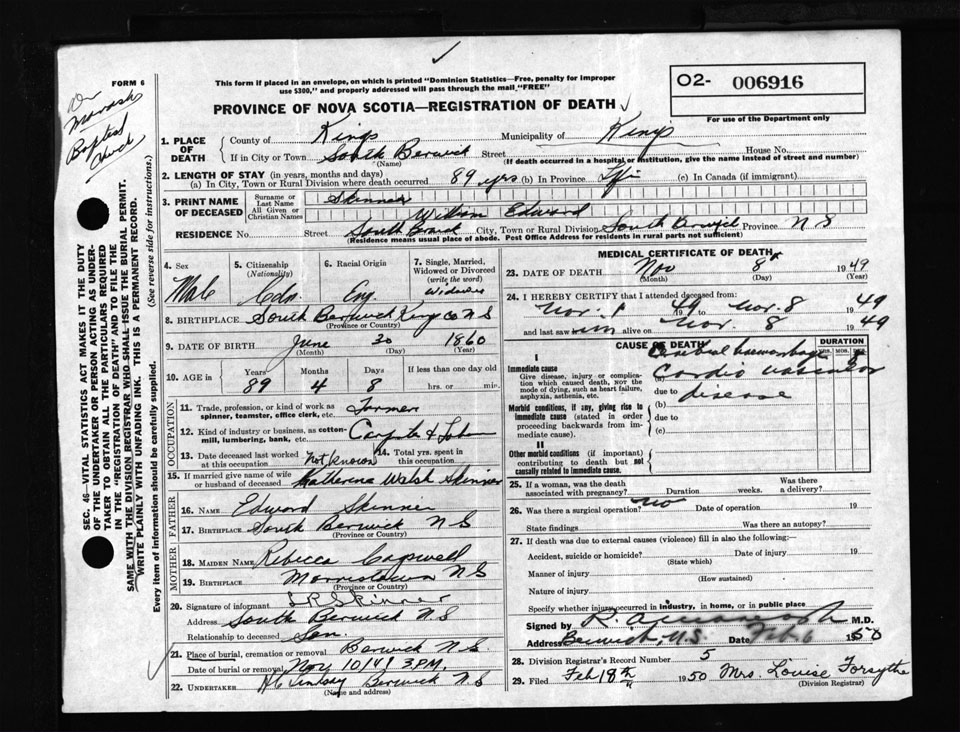 FORM 6
This form if placed in an envelope, on which is printed "Dominion Statistics—Free, penalty for improper
use $300," and properly addressed will pass through the mail "FREE"
O2- 006916
For use of the Department only
PROVINCE OF NOVA SCOTIA—REGISTRATION OF DEATH
Baptist
Church
SEC. 46—VITAL STATISTICS ACT MAKES IT THE DUTY
OF THE UNDERTAKER OR PERSON ACTING AS UNDER-
TAKER TO OBTAIN ALL THE PARTICULARS REQUIRED
IN THE "REGISTRATION OF DEATH" AND TO FILE THE
SAME WITH THE DIVISION REGISTRAR WHO SHALL ISSUE THE BURIAL PERMIT.
WRITE PLAINLY WITH UNFADING INK. THIS IS A PERMANENT RECORD.
Every item of information should be carefully supplied. (See reverse side for instructions.)
1. PLACE OF DEATH County of Kings Municipality of Kings
If in City or Town South Berwick Street House No.
(Name) (If death occurred in a hospital or institution, give the name instead of street and number)
2. LENGTH OF STAY (in years, months and days)
(a) In City, Town or Rural Division where death occurred 89 yrs (b) In Province Life (c) In Canada (if immigrant)
3. PRINT NAME OF DECEASED Surname or Last Name Skinner
All Given or Christian Names William Edward
RESIDENCE No. Street South Berwick City, Town or Rural Division South Berwick Province N S
(Residence means usual place of abode. Post Office Address for residents in rural parts not sufficient)
4. Sex Male
5. Citizenship (Nationality) Cdn.
6. Racial Origin Eng.
7. Single, Married, Widowed or Divorced (write the word) Widower
8. BIRTHPLACE South Berwick Kings co N S
(Province or Country)
9. DATE OF BIRTH June 30 1860
(Month) (Day) (Year)
10. AGE in Years Months Days If less than one day old
89 4 8 hrs. or min.
OCCUPATION
11. Trade, profession, or kind of work as spinner, teamster, office clerk, etc. Farmer
12. Kind of industry or business, as cotton-mill, lumbering, bank, etc.
13. Date deceased last worked at this occupation Not known
14. Total yrs. spent in this occupation
15. If married give name of wife or husband of deceased Katherena Walsh Skinner
FATHER
16. NAME Edward Skinner
17. BIRTHPLACE South Berwick N S
(Province or Country)
MOTHER
18. MAIDEN NAME Rebecca
19. BIRTHPLACE Morristown N S
(Province or Country)
20. Signature of informant Skinner
Address South Berwick N.S
Relationship to deceased Son.
21. Place of burial, cremation or removal Berwick N.S.
Date of burial or removal Nov 10/49 3 P.M.
22. UNDERTAKER Lindsay Berwick N S
(Name and address)
MEDICAL CERTIFICATE OF DEATH
23. DATE OF DEATH Nov 8 1949
(Month) (Day) (Year)
24. I HEREBY CERTIFY that I attended deceased from
Nov. 1 49 19 to Nov. 8 1949
and last saw him alive on Nov. 8 1949
CAUSE OF DEATH
DURATION
YRS. MOS. DYS.
I
Immediate cause Cerebral haemorrhage
Give disease, injury or complication which caused death, not the mode of dying, such as heart failure, asphyxia, asthenia, etc.
(a) Cardio vascular
due to disease
Morbid conditions, if any, giving rise to immediate cause (stated in order proceeding backwards from immediate cause).
(b) due to
(c)
II
Other morbid conditions (if important) contributing to death but not causally related to immediate cause.
25. If a woman, was the death associated with pregnancy? Duration weeks. Was there a delivery?
26. Was there a surgical operation? No Date of operation 19
State findings Was there an autopsy?
27. If death was due to external causes (violence) fill in also the following:
Accident, suicide or homicide? Date of injury 19
(State which)
Manner of injury
(How sustained)
Nature of injury
Specify whether injury occurred in industry, in home, or in public place
Signed by M.D.
Address Berwick, N.S. Date Feb 6 1950
28. Division Registrar's Record Number 5
29. Filed Feb 18th 1950 Mrs. Louise Forsythe
(Division Registrar)